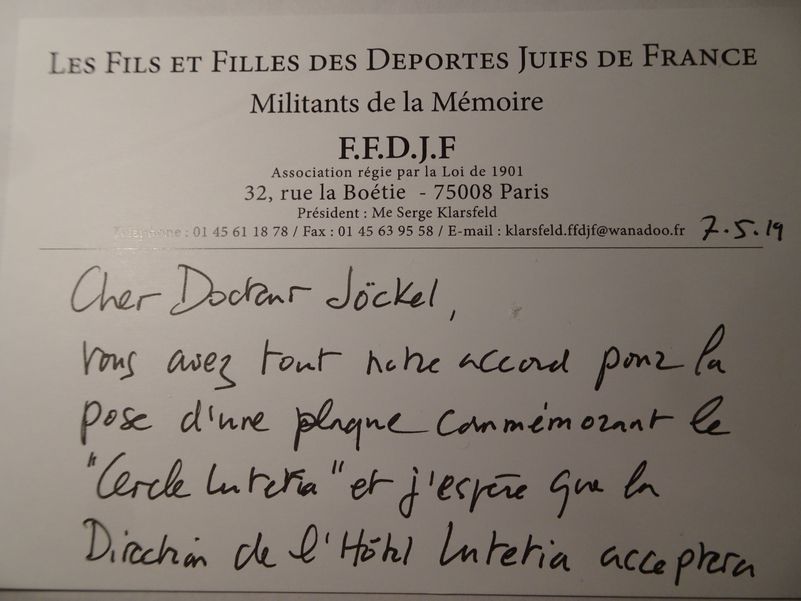 LES FILS ET FILLES DES DEPORTES JUIFS DE FRANCE
Militants de la Mémoire
F.F.D.J.F
Association régie par la Loi de 1901
32, rue la Boétie - 75008 Paris
Président : Me Serge Klarsfeld
Téléphone : 01 45 61 18 78 / Fax : 01 45 63 95 58 / E-mail : klarsfeld.ffdjf@wanadoo.fr 7.5.19
Cher Docteur Jöckel,
vous avez tout notre accord pour la
pose d'une plaque commémorant le
"Cercle Lutetia" et j'espère que la
Direction de l'Hôtel Lutetia acceptera